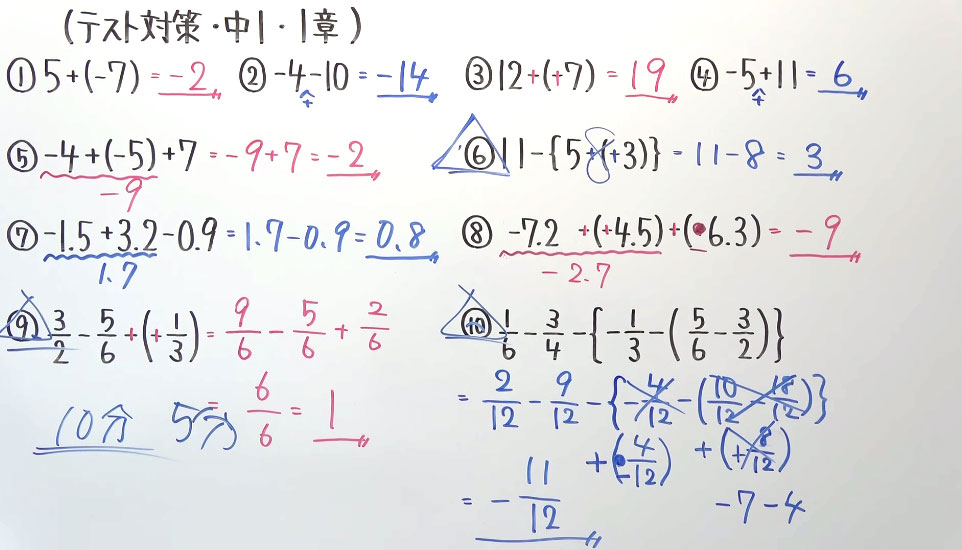 (テスト対策・中1・1章)
① 5+(-7) = -2 ② -4-10 = -14 ③ 12+(+7) = 19 ④ -5+11 = 6
+ +
⑤ -4+(-5)+7 = -9+7 = -2 ⑥ 11-{5+(+3)} = 11-8 = 3
-9
⑦ -1.5+3.2-0.9 = 1.7-0.9 = 0.8 ⑧ -7.2 +(+4.5)+(-6.3) = -9
1.7 -2.7
⑨ 3/2 - 5/6 + (+1/3) = 9/6 - 5/6 + 2/6 ⑩ 1/6 - 3/4 - {-1/3 - (5/6 - 3/2)}
= 6/6 = 1 = 2/12 - 9/12 - {-4/12 - (10/12 - 18/12)}
10分 5分 + (-4/12) + (+8/12)
= -11/12 -7-4